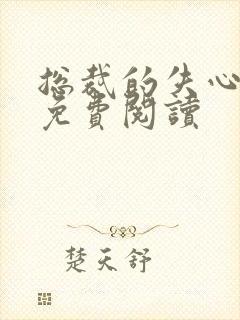 总裁的失心
免費閱讀
楚天舒